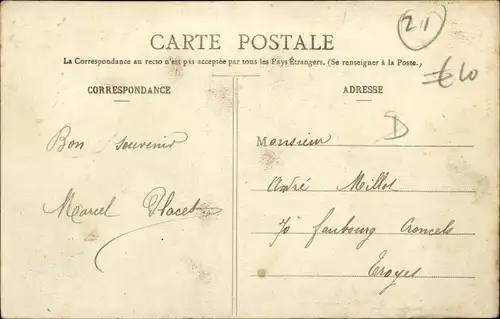 21
CARTE POSTALE
La Correspondance au recto n'est pas acceptée par tous les Pays Étrangers. (Se renseigner à la Poste.)
€10
CORRESPONDANCE
ADRESSE
D
Bon souvenir
Marcel Placet
Monsieur
André Millot
70 faubourg Croncels
Troyes